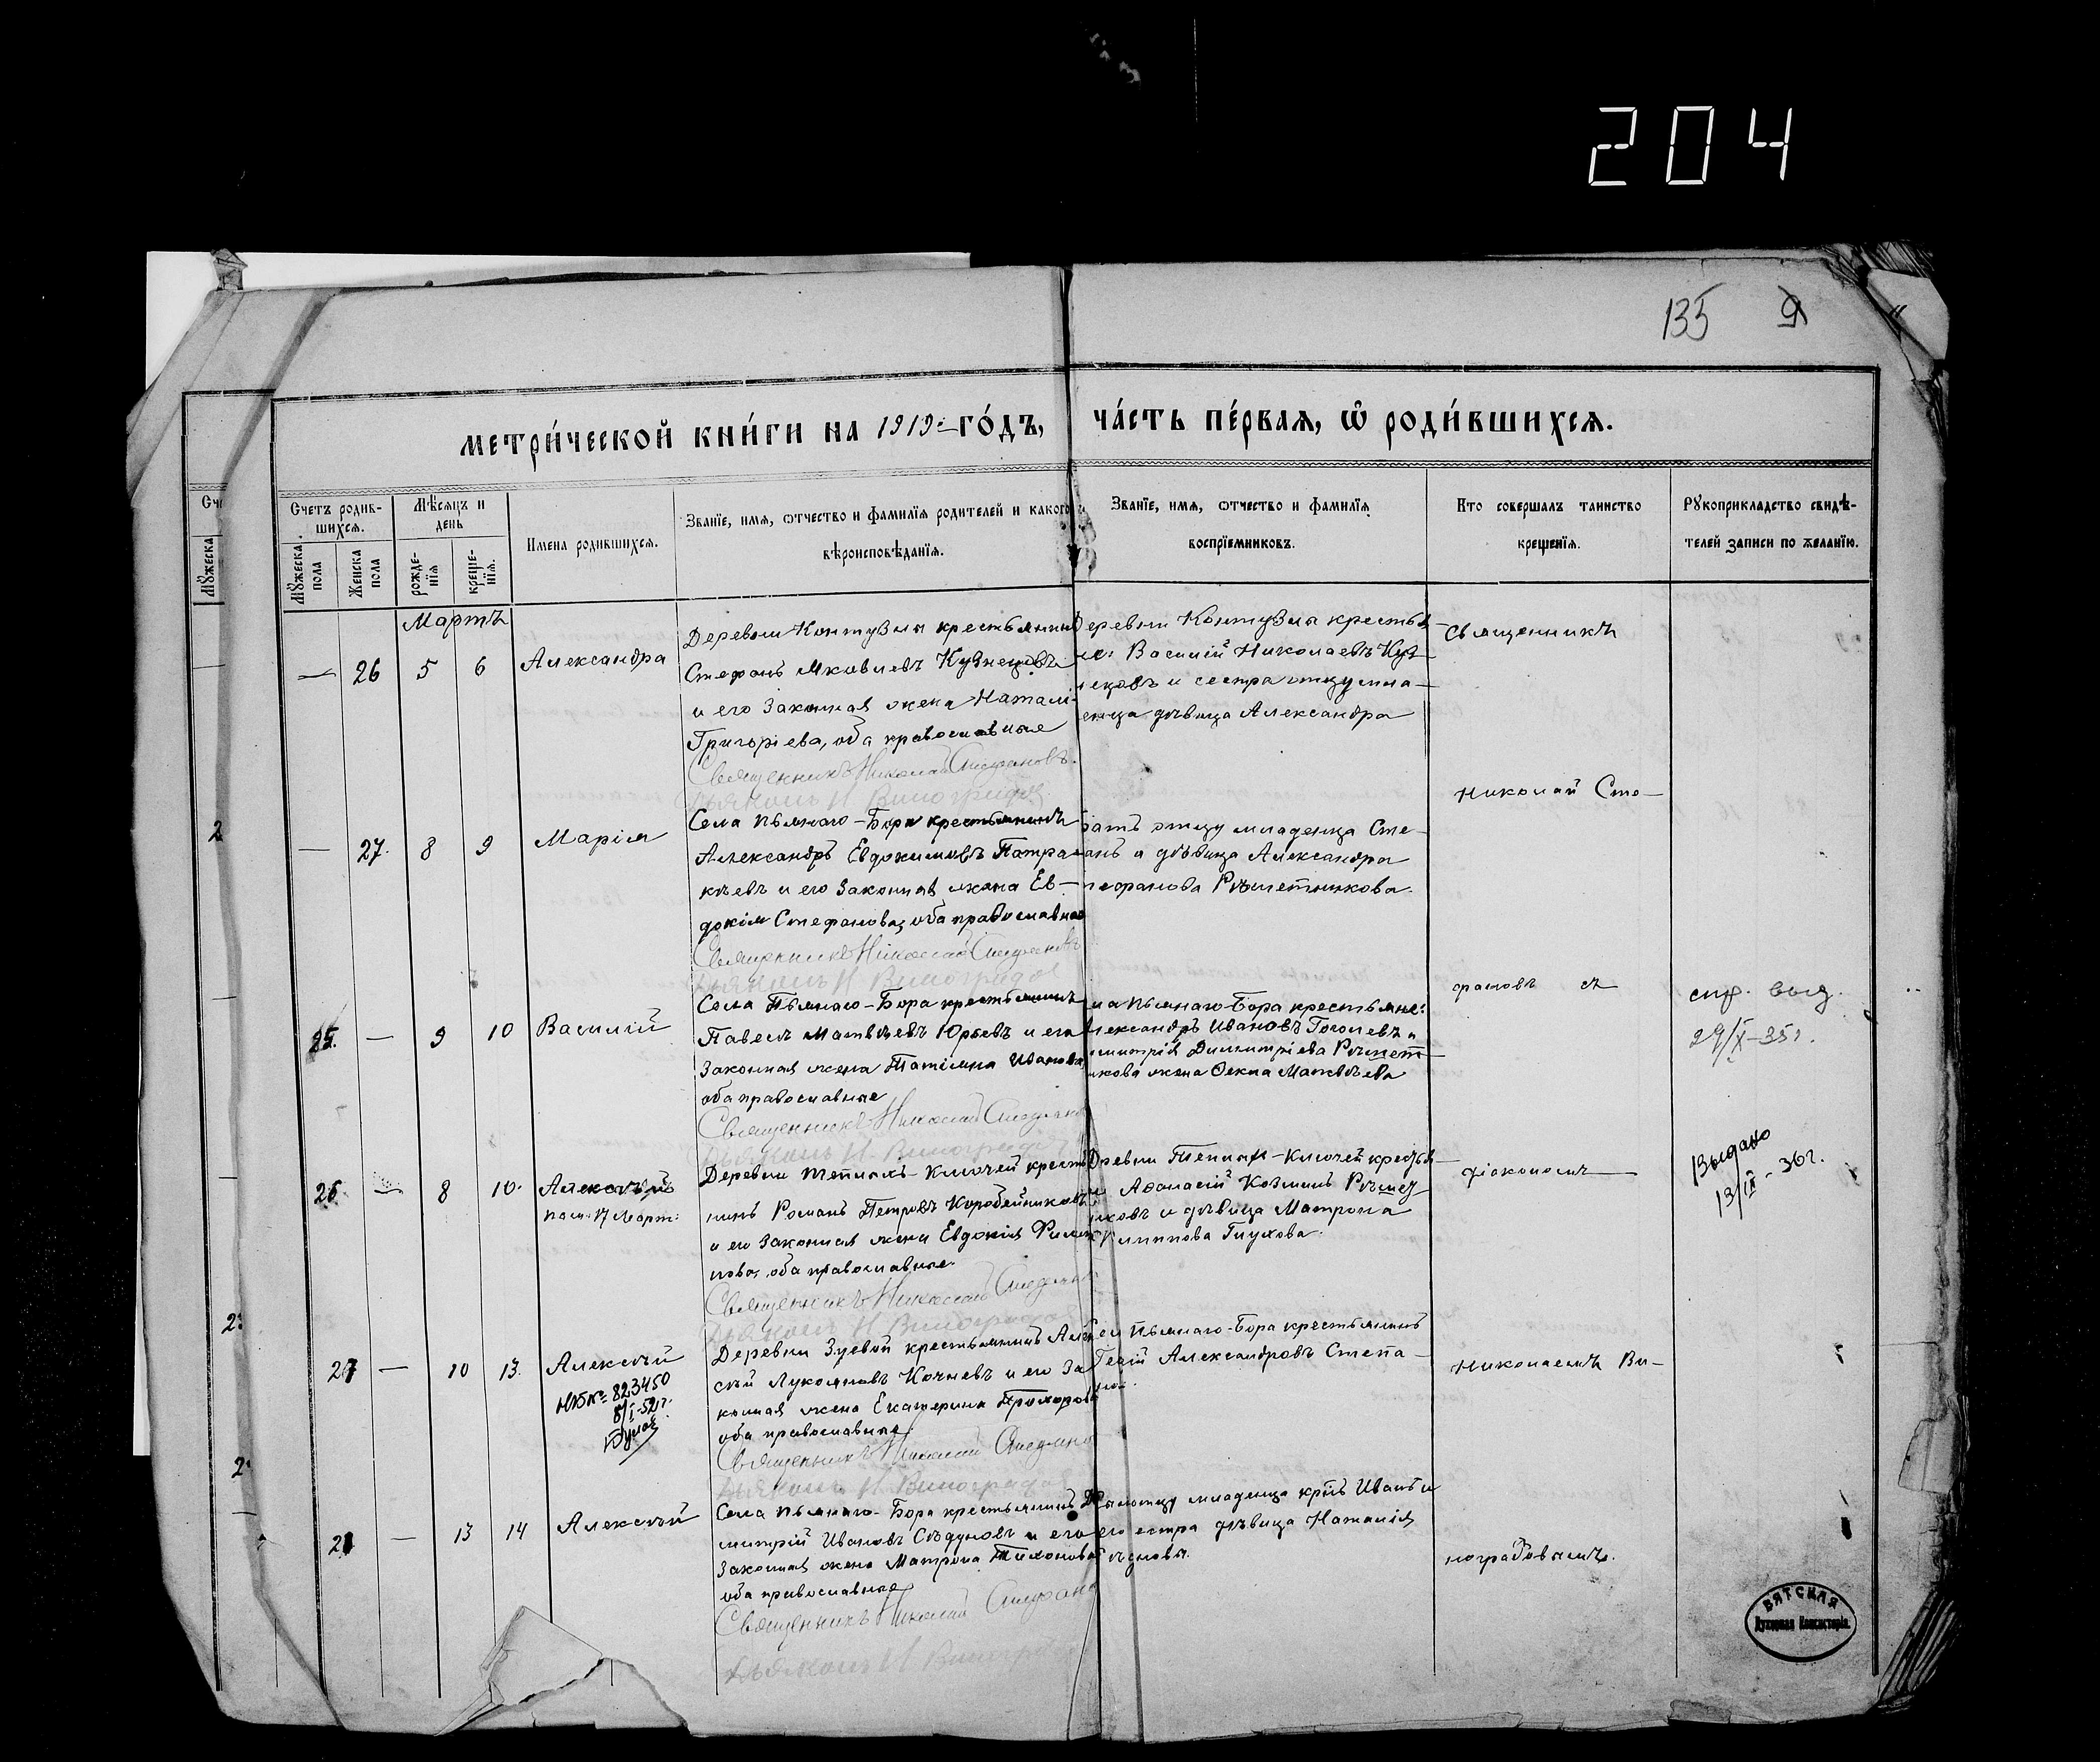 204
135
9
метри́ческой кни́ги на 1919 го́дъ, ча́сть пе́рвая, ѡ҆ роди́вшихся.
Счетъ родив-
шихся.
Мѣсяцъ и
день
Имена родившихся.
Званїе, имя, ѡтчество и фамилїя родителей и какого
вѣроисповѣданїя.
Званїе, имя, ѡтчество и фамилїя
воспрїемниковъ.
Кто совершалъ таинство
крещенїя.
Рукоприкладство свидѣ-
телей записи по желанїю.
Мужеска пола
Женска пола
рожде-
нїя
креще-
нїя.
Мартъ
— 26 5 6 Александра
Деревни Контузла крестьянинъ
Стефанъ Яковлевъ Кузнецовъ
и его законная жена Наталі-
Григоріева, оба православные
Священникъ Николай Стефановъ.
Дьяконъ Н. Виноградов
Деревни Контузла крестья-
Василій Николаевъ Куз-
нецовъ и сестра отцу мла-
енца дѣвица Александра
Священникъ
— 27. 8 9 Марія
Села Пьянаго-Бора крестьянинъ
Александръ Евдокимовъ Патра-
кѣевъ и его законная жена Ев-
докія Стефанова, оба православные
Священникъ Николай Стефановъ
Дьяконъ Н. Виноградов
братъ отцу младенца Сте-
анъ и дѣвица Александра
Рѣшетникова.
Николай Сте-
25. — 9 10 Василій
Села Пьянаго-Бора крестьянинъ
Павелъ Матвѣевъ Юрьевъ и его
законная жена Татіяна Иванова,
оба православные
Священникъ Николай Стефанов
Дьяконъ Н. Виноградов
ла Пьянаго-Бора крестьяне:
лександръ Ивановъ Гоголевъ и
митрія Димитріева Рѣшет-
никова жена Фекла Матвѣева
фановъ съ
спр. выд.
29/X-35г.
26. — 8 10. Алексѣй
17 Март.
Деревни Теплыхъ-Ключей кресть
нинъ Романъ Петровъ Коробейниковъ
и его законная жена Евдокія Филип
пова, оба православные.
Священникъ Николай Стефанов
Дьяконъ Н. Виноградов
Деревни Теплых-Ключей крестья-
Аѳанасій Козминъ Рѣшет-
никовъ и дѣвица Матрона
Филиппова Глухова.
діакономъ
Выдано
13/IX-36г.
27 — 10 13. Алексѣй
№ 823450
8/I-52г.
Деревни Зуевой крестьянинъ Алек
сѣй Лукояновъ Кочневъ и его за
конная жена Екатерина Прохорова
оба православные.
Священникъ Николай Стефанов
Дьяконъ Н. Виноградов
Села Пьянаго-Бора крестьянинъ
Александровъ Степа-
Николаемъ Ви-
28 — 13 14 Алексѣй
Села Пьянаго-Бора крестьянинъ Ди
митрій Ивановъ Сѣдуновъ и его
законная жена Матрона Тихонова
оба православные
Священникъ Николай Стефанов
Дьяконъ Н. Виногр
отцу младенца Иванъ и
его сестра дѣвица Наталія
Сѣдуновы.
ноградовымъ.
ВЯТСКАЯ
Духовная Консисторія.